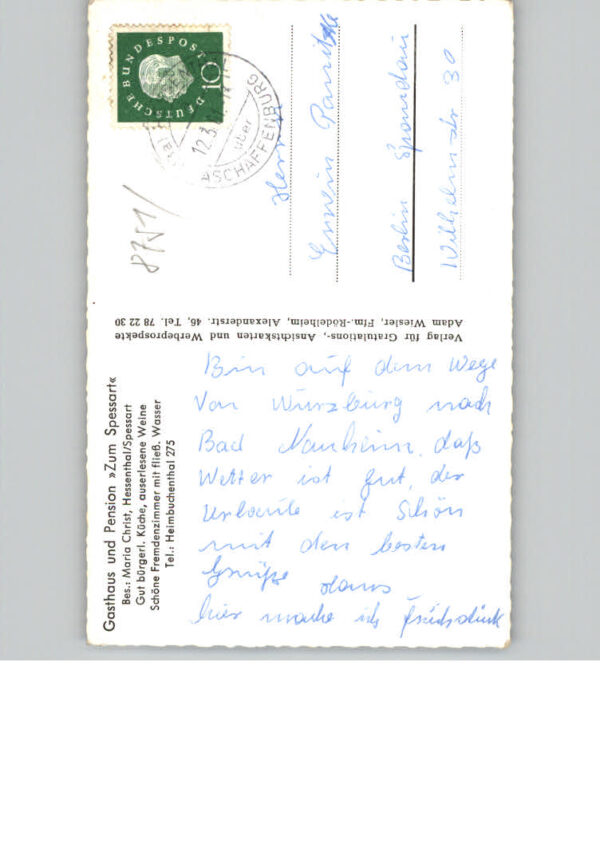 Gasthaus und Pension »Zum Spessart«
Bes.: Maria Christ, Hessenthal/Spessart
Gut bürgerl. Küche, auserlesene Weine
Schöne Fremdenzimmer mit fließ. Wasser
Tel.: Heimbuchenthal 275
Bin auf dem Wege
Von Würzburg nach
Bad Nauheim, daß
Wetter ist gut, der
ist Schön
mit den besten
Grüße
hier mache ich Frühstück
Verlag für Gratulations-, Ansichtskarten und Werbeprospekte
Adam Wiesler, Ffm.-Rödelheim, Alexanderstr. 46, Tel. 78 22 30
DEUTSCHE BUNDESPOST
10
12.3.
über
ASCHAFFENBURG
8751/
Herrn
Erwin
Berlin Spandau
Wilhelmstr 30